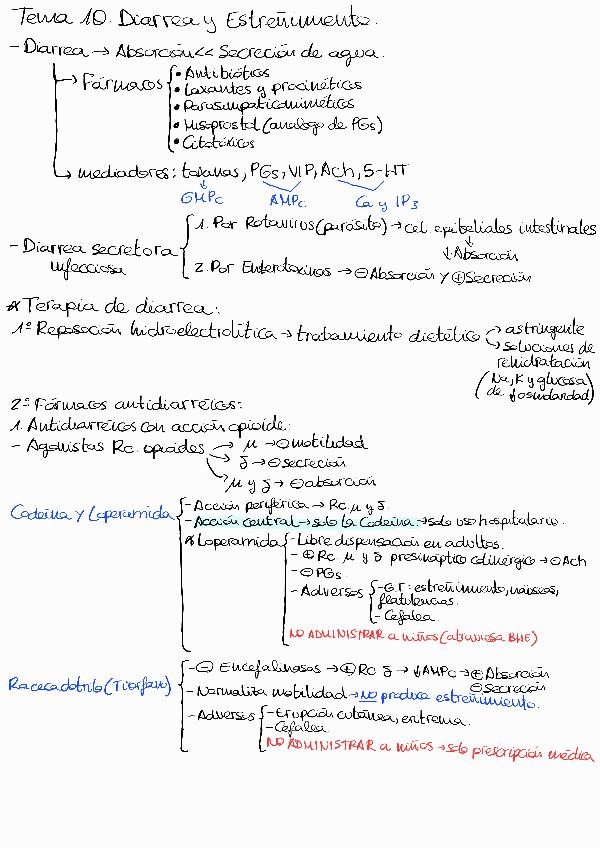 Tema 10. Diarrea y Estreñimiento.
- Diarrea → Absorción << Secreción de agua.
→ Fármacos
• Antibióticos
• Laxantes y procinéticos
• Parasimpaticomiméticos
• Misoprostol (análogo de PGs)
• Citotóxicos
→ mediadores: toxinas, PGs, VIP, Ach, 5-HT
GMPc AMPc Ca y IP3
- Diarrea secretora infecciosa
1. Por Rotavirus (parásito) → cel. epiteliales intestinales
↓ Absorción
2. Por Enterotoxinas → ⊖ Absorción y ⊕ Secreción
* Terapia de diarrea:
1º Reposición hidroelectrolítica → tratamiento dietético → astringente
→ soluciones de
rehidratación
(Na, K y glucosa)
de osmolaridad
2º Fármacos antidiarreicos:
1. Antidiarreicos con acción opioide:
- Agonistas Rc. opioides → μ → ⊖ motilidad
→ δ → ⊖ secreción
→ μ y δ → ⊖ absorción
Codeína y Loperamida
- Acción periférica → Rc. μ y δ.
- Acción central → solo la Codeína → solo uso hospitalario.
* Loperamida
- Libre dispensación en adultos.
- ⊕ Rc. μ y δ presináptico colinérgico → ⊖ Ach
- ⊖ PGs
- Adversos
- G.I: estreñimiento, náuseas,
flatulencias.
- Cefalea
NO ADMINISTRAR a niños (atraviesa BHE)
Racecadotrilo (Tiorfano)
- ⊖ Encefalinasas → ⊕ Rc δ → ↓ AMPc → ⊕ Absorción
⊖ Secreción
- Normaliza motilidad → NO produce estreñimiento.
- Adversos
- Erupción cutánea, eritema.
- Cefalea
NO ADMINISTRAR a niños → solo prescripción médica